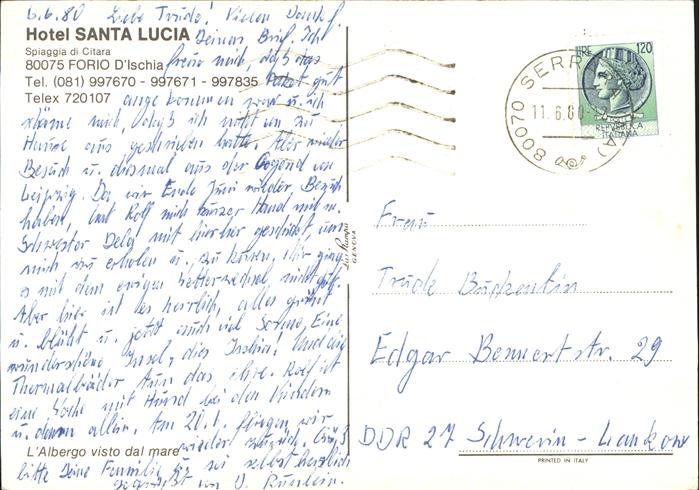 6.6.80 Liebe Trude! Vielen Dank f.
Hotel SANTA LUCIA
Deinen Brief. Ich
Spiaggia di Citara
80075 FORIO D'Ischia
freue mich, daß das
Tel. (081) 997670 - 997671 - 997835
Paket gut
Telex 720107
angekommen war u. ich
schäme mich, daß ich nicht von zu
Hause aus geschrieben hatte. Aber wieder
Besuch u. diesmal aus der Gegend von
Leipzig. Da wir Ende Juni wieder Besuch
haben, hat Rolf mich kurzer Hand mit m.
Schwester hierher geschickt um
mich zu erholen u. zu. Mir ging
es mit dem ewigen Wetterwechsel nicht gut.
Aber hier ist es herrlich, alles grünt
u. blüht u. jetzt auch viel Sonne, Eine
wunderschöne Insel, dies Ischia! Und die
Thermalbäder tun das ihre. Rolf ist
eine Woche mit Hund bei den Kindern
u. dann allein. Am 20.6. fliegen wir
L'Albergo visto dal mare
wieder zurück. Grüß
bitte Deine Familie u. sei selbst herzlich
gegrüßt von
La Stampa
GENOVA
LIRE 120
REPUBBLICA
ITALIANA
80070 SERR
11.6.80
Frau
Trude
Edgar Bennert str. 29
DDR 27 Schwerin - Lankow
PRINTED IN ITALY